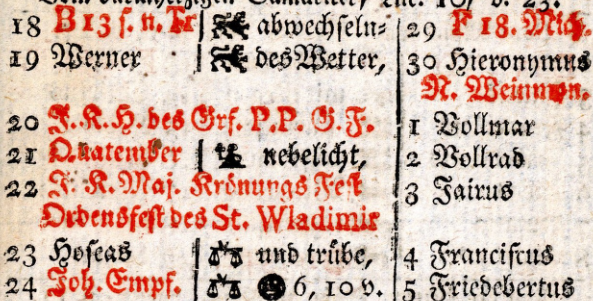 18 B 13 s. n. Tr abwechseln= 29 F 18. Mich.
19 Werner des Wetter, 30 Hieronymus
N. Weinmon.
20 J. K. H. des Grf. P. P. G. F. 1 Vollmar
21 Quatember nebelicht, 2 Vollrad
22 J. K. Maj. Krönungs Fest 3 Jairus
Ordensfest des St. Wladimir
23 Hoseas und trübe, 4 Franciscus
24 Joh. Empf. 6, 10 v. 5 Friedebertus